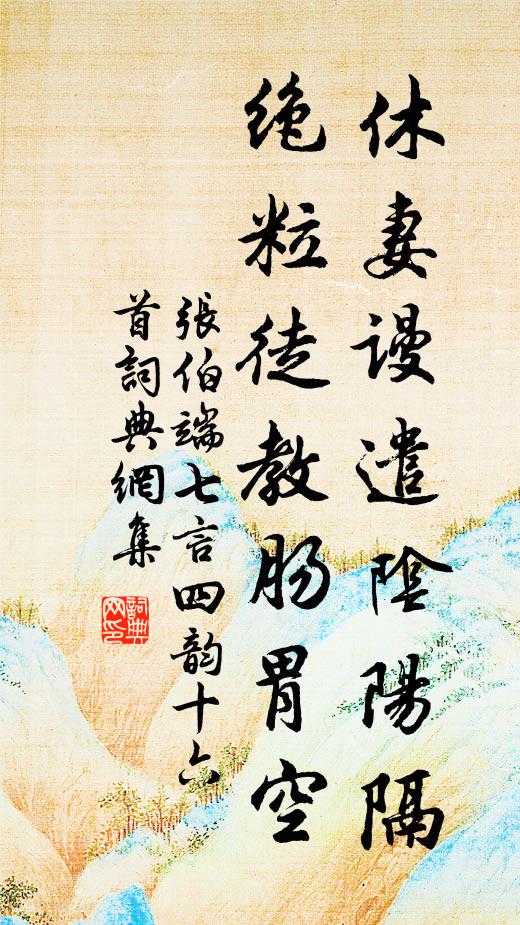 休妻谩遣陰陽隔
绝粒徒教肠胃空
張伯端七言四韵十六
首詞典網集
詞典
网印